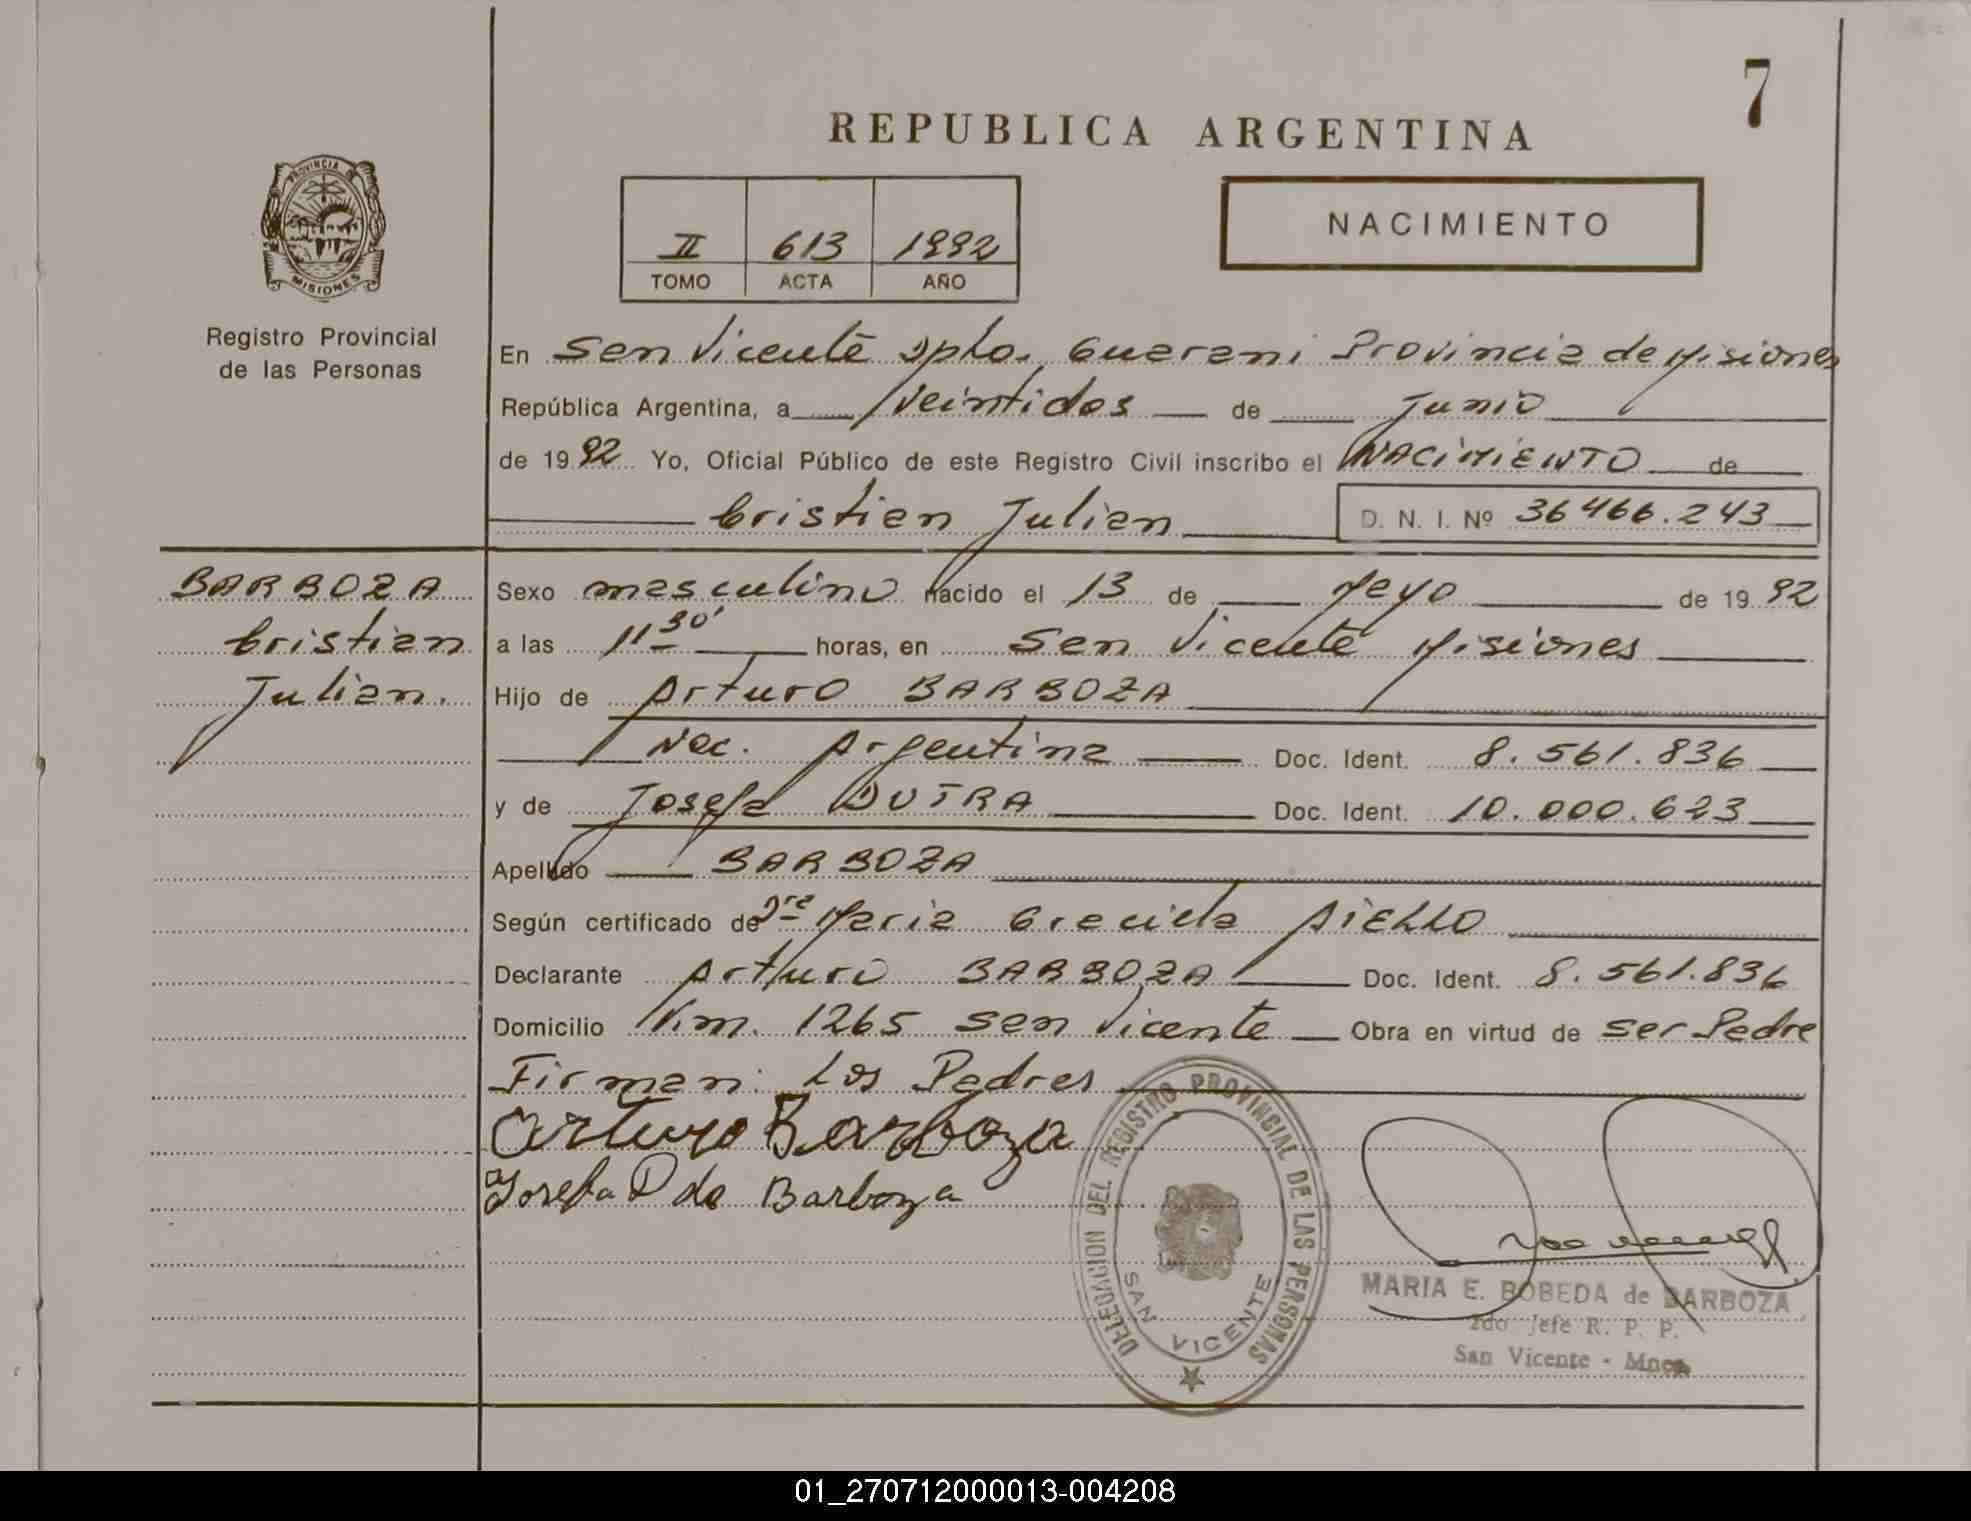 7
REPUBLICA ARGENTINA
PROVINCIA DE
MISIONES
II 613 1992
TOMO ACTA AÑO
NACIMIENTO
Registro Provincial
de las Personas
En San Vicente Dpto. Guarani Provincia de Misiones
República Argentina, a Veintidos de Junio
de 1992 Yo, Oficial Público de este Registro Civil inscribo el NACIMIENTO de
Cristian Julian D. N. I. Nº 36466.243
BARBOZA
Cristian
Julian.
Sexo masculino nacido el 13 de Mayo de 1992
a las 11 30' horas, en San Vicente Misiones
Hijo de Arturo BARBOZA
Nac. Argentina Doc. Ident. 8.561.836
y de Josefa DUTRA Doc. Ident. 10.000.623
Apellido BARBOZA
Según certificado de Dra Maria Graciela AIELLO
Declarante Arturo BARBOZA Doc. Ident. 8.561.836
Domicilio Km. 1265 San Vicente Obra en virtud de ser Padre
Firman: Los Padres
Arturo Barboza
Josefa D de Barboza
DELEGACION DEL REGISTRO PROVINCIAL DE LAS PERSONAS
SAN VICENTE
MARIA E. BOBEDA de BARBOZA
2do Jefe R. P. P.
San Vicente - Mnes.
01_270712000013-004208